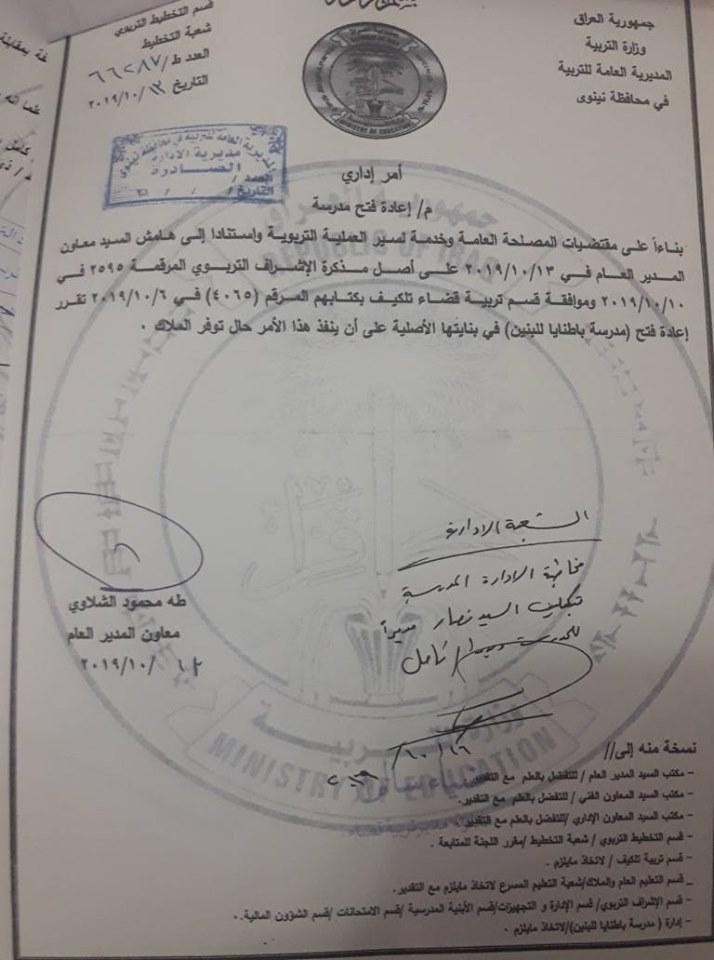 جمهورية العراق
وزارة التربية
المديرية العامة للتربية
في محافظة نينوى
قسم التخطيط التربوي
شعبة التخطيط
العدد ط/ ٦٦٢٨٧
التاريخ ١٣/ ٢٠١٩/١٠
MINISTRY OF EDUCATION
المديرية العامة للتربية في محافظة نينوى
مديرية الادارة
الصادرة
العدد /
التاريخ / /
جمهورية العراق
REPUBLIC OF IRAQ
أمر إداري
م/ إعادة فتح مدرسة
بناءاً على مقتضيات المصلحة العامة وخدمة لسير العملية التربوية واستنادا إلى هامش السيد معاون
المدير العام في ٢٠١٩/١٠/١٣ على أصل مذكرة الإشراف التربوي المرقمة ٢٥٩٥ في
٢٠١٩/١٠/١٠ وموافقة قسم تربية قضاء تلكيف بكتابهم المرقم (٤٠٦٥) في ٢٠١٩/١٠/٦ تقرر
إعادة فتح (مدرسة باطنايا للبنين) في بنايتها الأصلية على أن ينفذ هذا الأمر حال توفر الملاك .
طه محمود الشلاوي
معاون المدير العام
٢٠١٩/١٠/
الشعبة الادارية
مخاطبة الادارة المدرسية
تكليف السيد نصار مديراً
للمدرسة
كامل
١٦/١٠/
وزارة التربية
MINISTRY OF EDUCATION
نسخة منه إلى//
- مكتب السيد المدير العام / للتفضل بالعلم مع التقدير.
- مكتب السيد المعاون الفني / للتفضل بالعلم مع التقدير.
- مكتب السيد المعاون الإداري /للتفضل بالعلم مع التقدير.
- قسم التخطيط التربوي / شعبة التخطيط / مقرر اللجنة للمتابعة .
- قسم تربية تلكيف / لاتخاذ مايلزم .
- قسم التعليم العام والملاك/شعبة التعليم المسرع لاتخاذ مايلزم مع التقدير.
- قسم الإشراف التربوي/ قسم الإدارة و التجهيزات/قسم الأبنية المدرسية /قسم الامتحانات /قسم الشؤون المالية.
- إدارة ( مدرسة باطنايا للبنين)/لاتخاذ مايلزم .